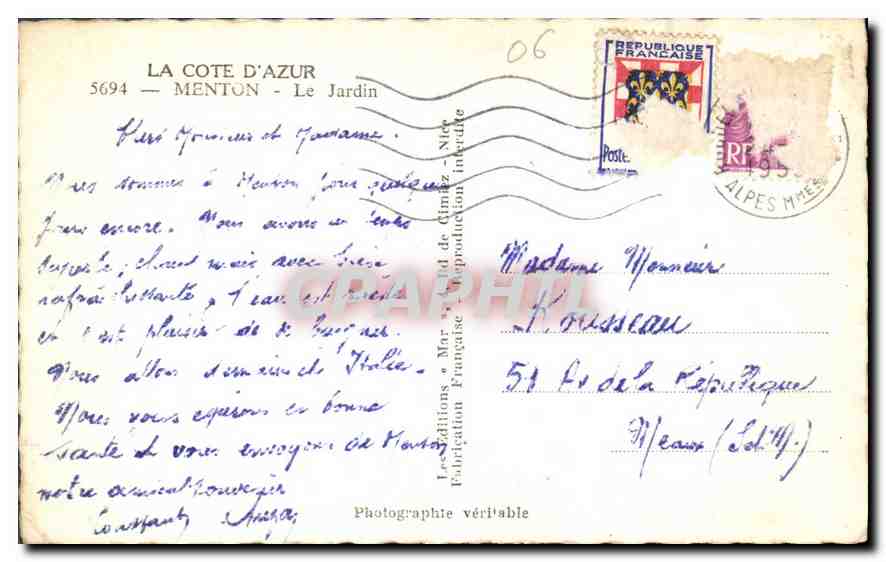 06
LA COTE D'AZUR
5694 — MENTON - Le Jardin
REPUBLIQUE
FRANCAISE
Poste
RF
195
ALPES MMES
Chers Monsieur et Madame.
Nous sommes à Menton pour quelques
jours encore. Nous avons un temps
superbe, chaud mais avec brise
rafraîchissante, l'eau est
et c'est plaisir de se baigner.
Nous allons Italie.
Nous vous espérons en bonne
santé et vous envoyons de Menton
notre amical souvenir
Les Editions « Mar » Ed de Cimiez - Nice
Fabrication Française - Reproduction interdite
CPAPHIL
Madame Monsieur
Rousseau
51 Av de la République
Meaux (S et M.)
Photographie véritable